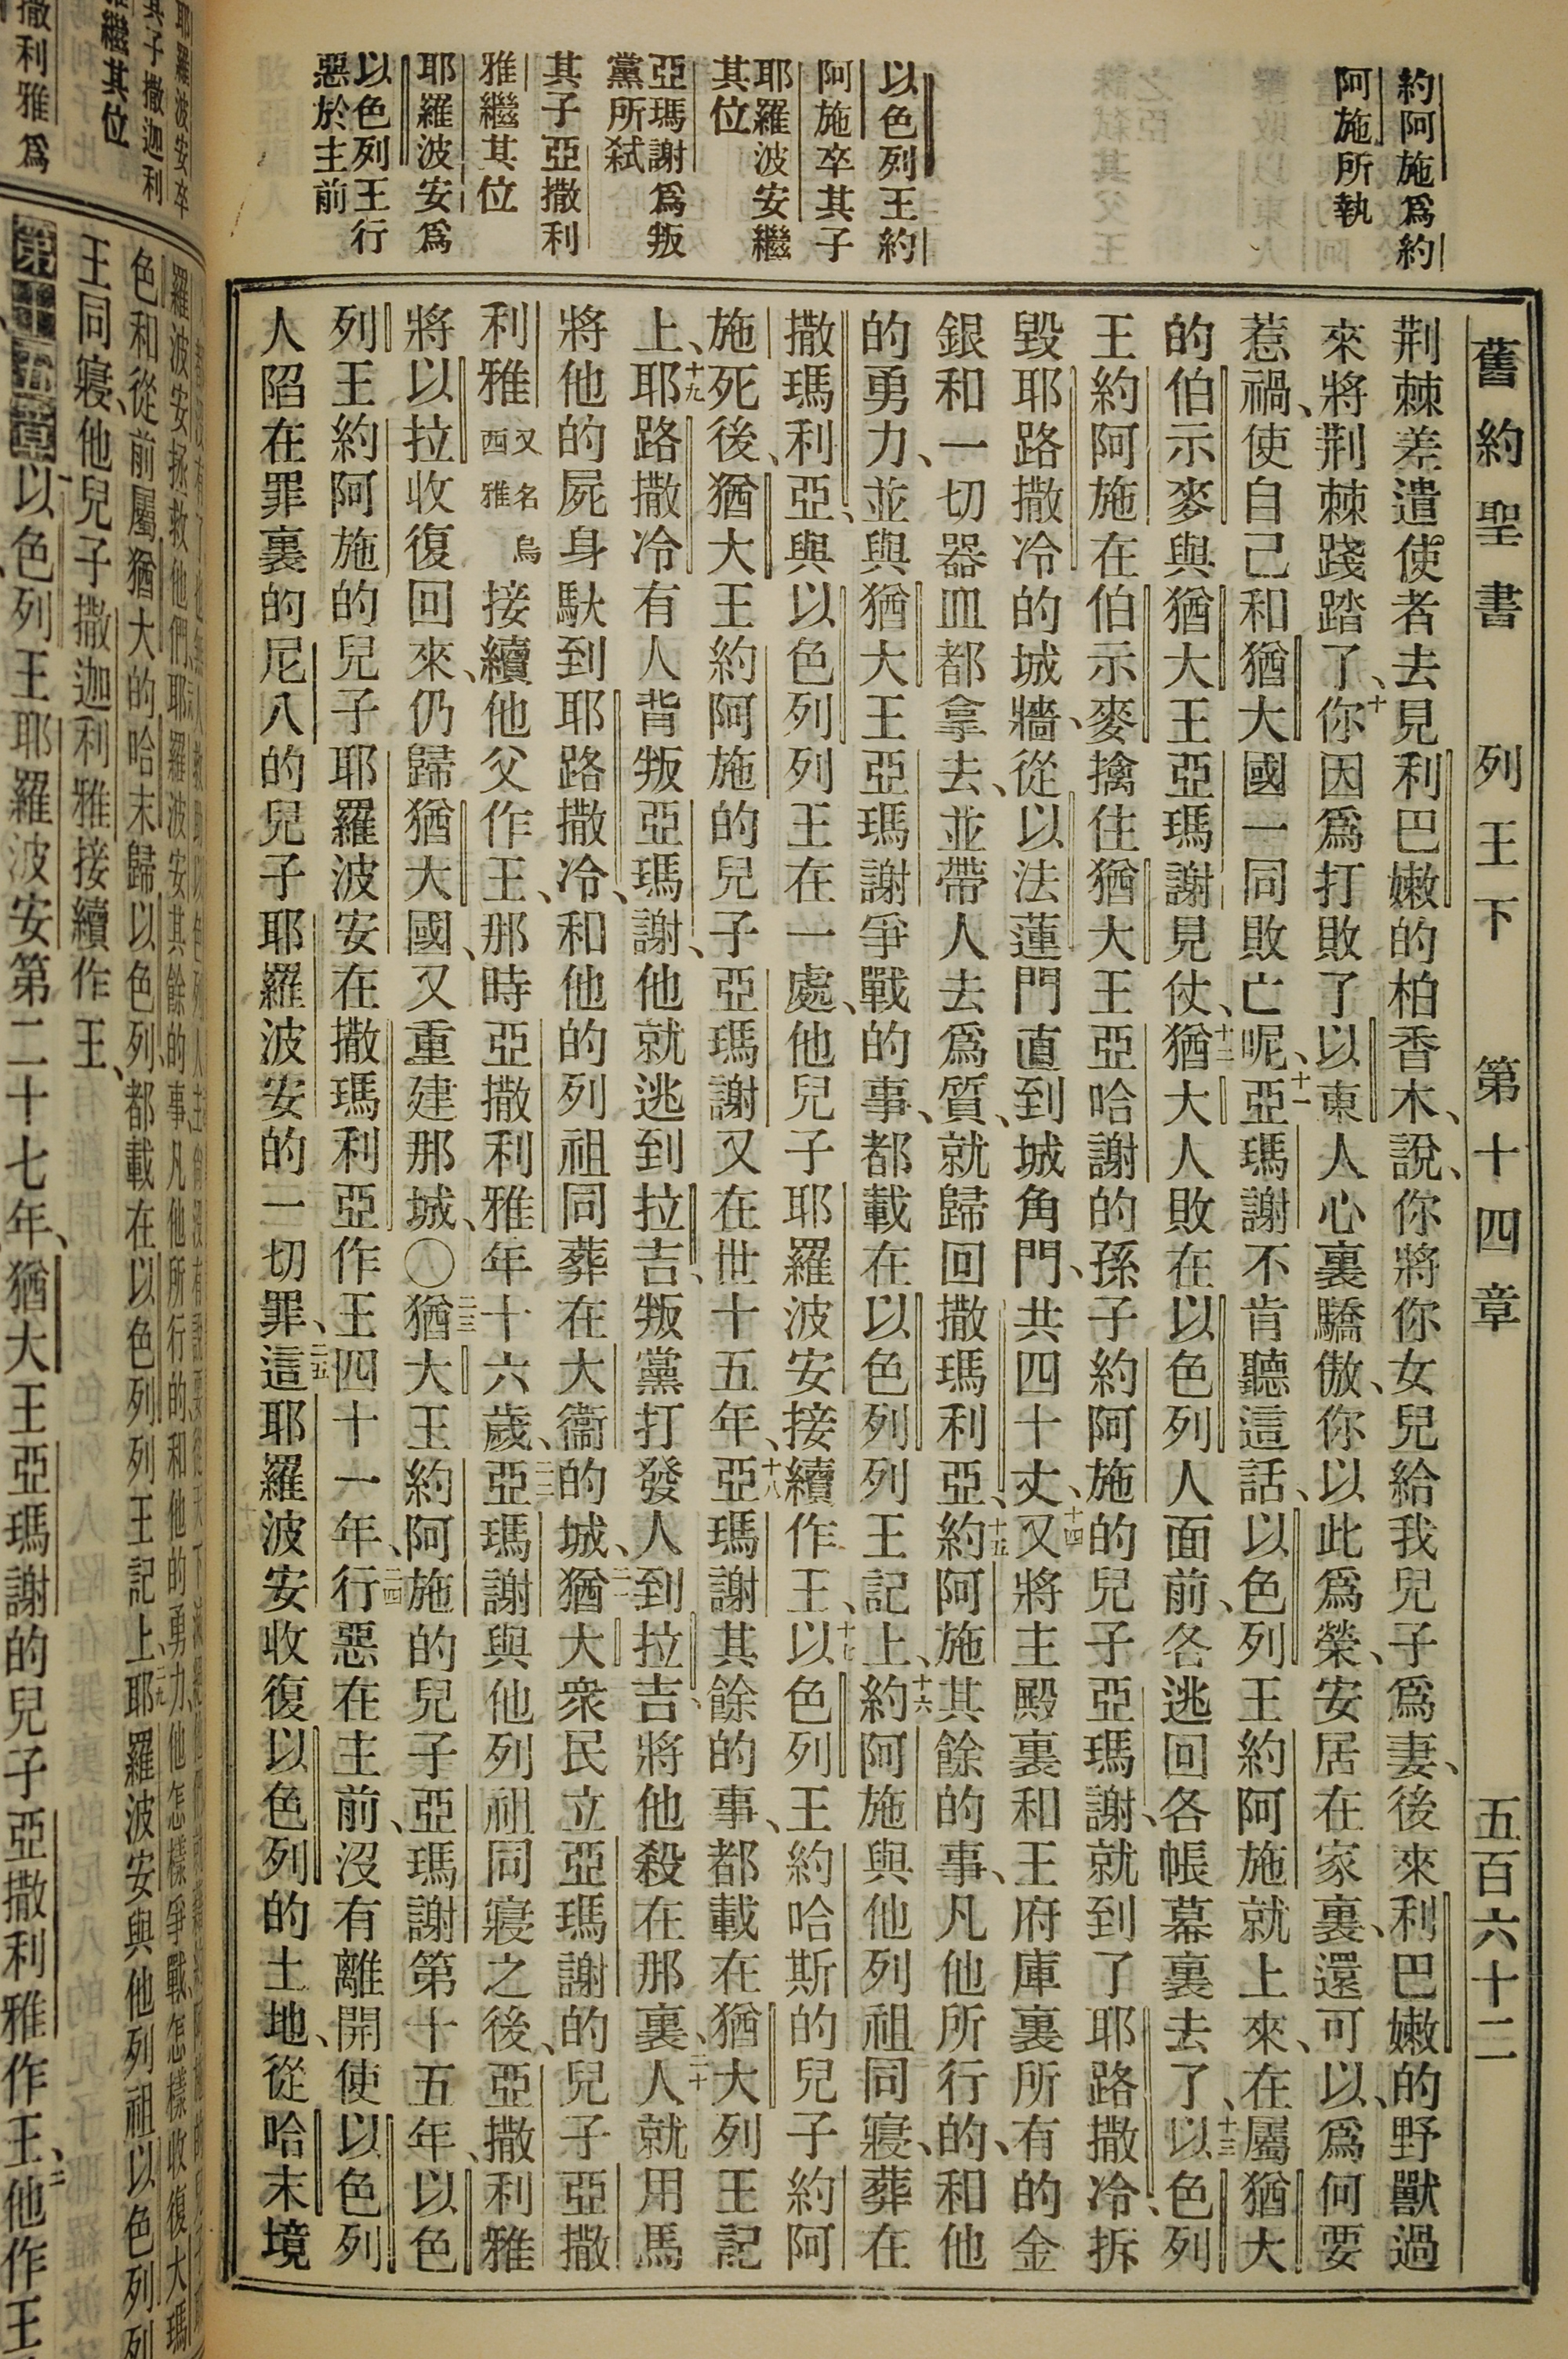 舊約聖書 列王下 第十四章 五百六十二
約阿施爲約
阿施所執
以色列王約
阿施卒其子
耶羅波安繼
其位
亞瑪謝爲叛
黨所弒
其子亞撒利
雅繼其位
耶羅波安爲
以色列王行
惡於主前
荆棘差遣使者去見利巴嫩的柏香木、說、你將你女兒給我兒子爲妻、後來利巴嫩的野獸過
來將荆棘踐踏了、十你因爲打敗了以東人心裏驕傲、你以此爲榮、安居在家裏、還可以、爲何要
惹禍、使自己和猶大國一同敗亡呢、十一亞瑪謝不肯聽這話、以色列王約阿施就上來、在屬猶大
的伯示麥與猶大王亞瑪謝見仗、十二猶大人敗在以色列人面前、各逃回各帳幕裏去了、十三以色列
王約阿施在伯示麥擒住猶大王亞哈謝的孫子約阿施的兒子亞瑪謝、就到了耶路撒冷、拆
毀耶路撒冷的城牆、從以法蓮門直到城角門、共四十丈、十四又將主殿裏和王府庫裏所有的金
銀和一切器皿都拿去、並帶人去爲質、就歸回撒瑪利亞、十五約阿施其餘的事、凡他所行的、和他
的勇力、並與猶大王亞瑪謝爭戰的事、都載在以色列列王記上、十六約阿施與他列祖同寢、葬在
撒瑪利亞、與以色列列王在一處、他兒子耶羅波安接續作王、十七以色列王約哈斯的兒子約阿
施死後、猶大王約阿施的兒子亞瑪謝又在世十五年、十八亞瑪謝其餘的事、都載在猶大列王記
上、十九耶路撒冷有人背叛亞瑪謝、他就逃到拉吉、叛黨打發人到拉吉、將他殺在那裏、二十人就用馬
將他的屍身馱到耶路撒冷、和他的列祖同葬在大衞的城、二一猶大衆民立亞瑪謝的兒子亞撒
利雅又名烏西雅接續他父作王、那時亞撒利雅年十六歲、二二亞瑪謝與他列祖同寢之後、亞撒利雅
將以拉收復回來、仍歸猶大國、又重建那城、〇二三猶大王約阿施的兒子亞瑪謝第十五年、以色
列王約阿施的兒子耶羅波安在撒瑪利亞作王四十一年、二四行惡在主前、沒有離開使以色列
人陷在罪裏的尼八的兒子耶羅波安的一切罪、二五這耶羅波安收復以色列的土地、從哈末境
耶羅波安卒
其子撒迦利
雅繼其位
撒利雅爲
色和從前屬猶大的哈末歸以色列、都載在以色列列王記上、二九耶羅波安與他列祖以色列列
王同寢、他兒子撒迦利雅接續作王、
第十五章 以色列王耶羅波安第二十七年、猶大王亞瑪謝的兒子亞撒利雅作王、二他作王